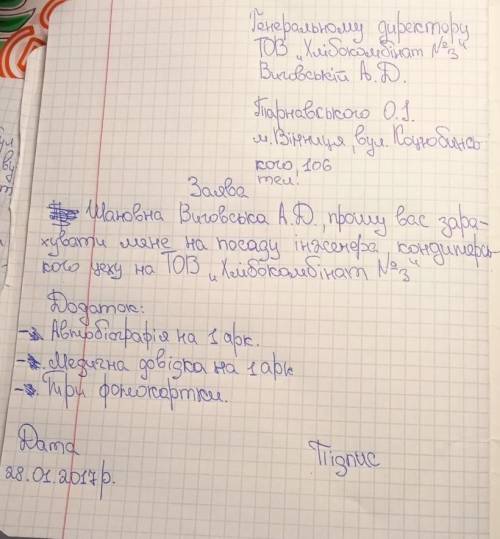 Генеральному директору
ТОВ „Хлібокомбінат №3"
Виговській А.Д.
Тарнавського О.І.
м.Вінниця, вул. Коцюбинсь
кого, 106
тел.
Заява
Шановна Виговська А.Д., прошу вас зара-
хувати мене на посаду інженера кондитерсь-
кого цеху на ТОВ „Хлібокомбінат №3"
Додаток:
- Автобіографія на 1 арк.
- Медична довідка на 1 арк
- Три фотокартки.
Дата
Підпис
28.01.2017р.